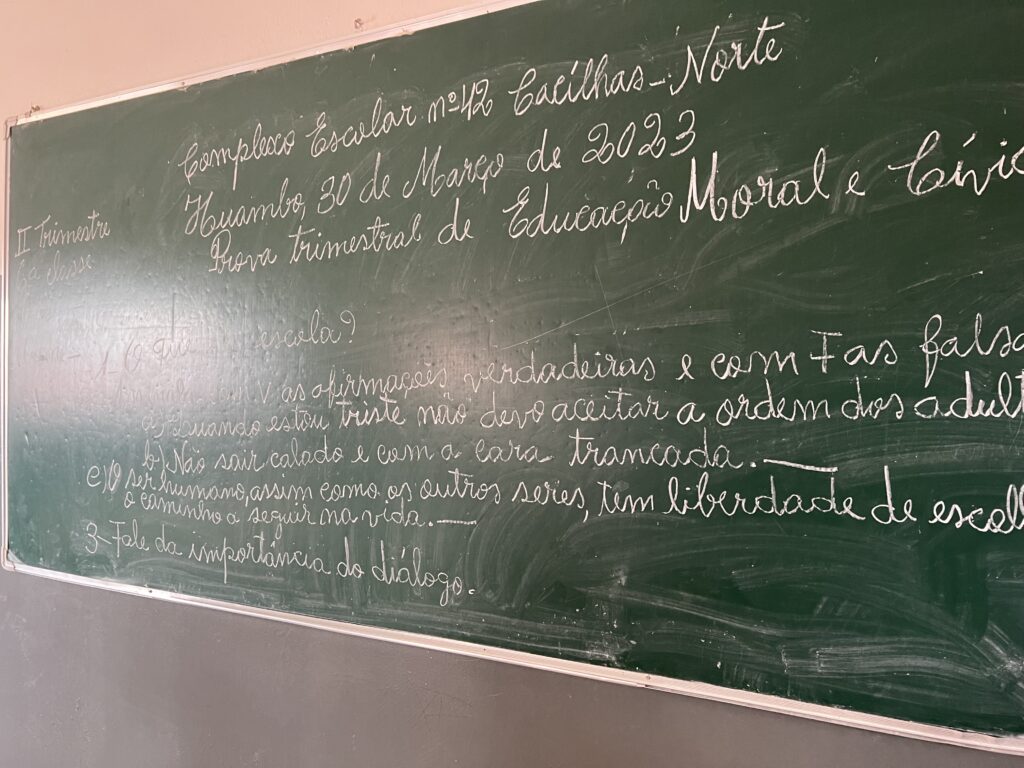 Complexo Escolar nº 42 Cacilhas-Norte
Huambo, 30 de Março de 2023
Prova trimestral de Educação Moral e Cívic
II Trimestre
6ª classe
1- O que escola?
V as afirmações verdadeiras e com F as falsa
a) Quando estou triste não devo aceitar a ordem dos adult
b) Não sair calado e com a cara trancada. —
c) O ser humano, assim como os outros seres, tem liberdade de escol
o caminho a seguir na vida. —
3- Fale da importância do diálogo.